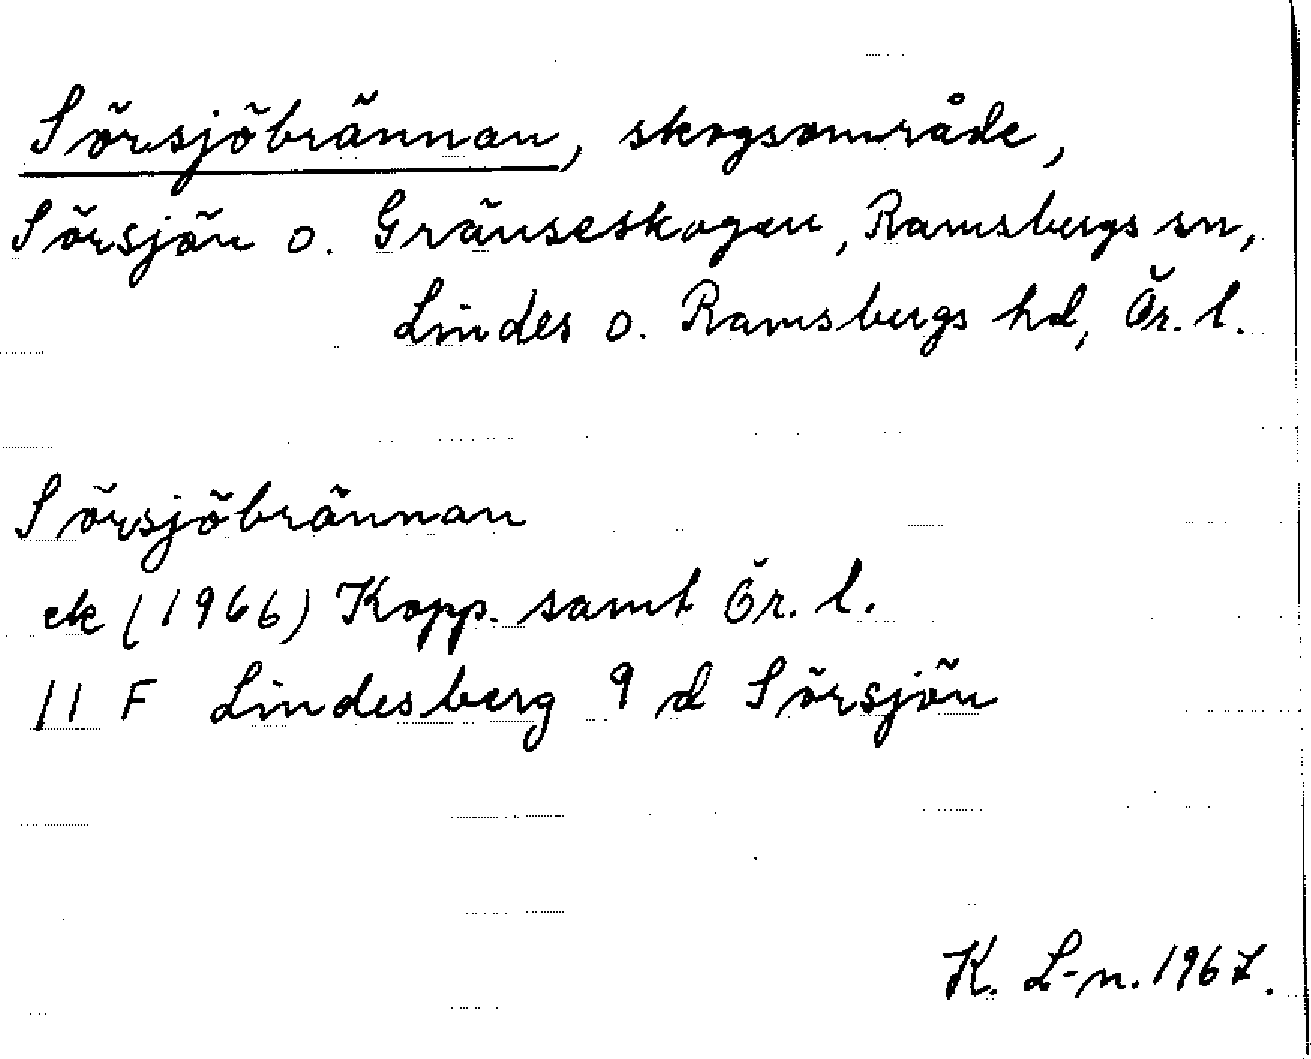 Sörsjöbrännan, skogsområde,
Sörsjön o. Gränseskogen, Ramsbergs sn,
Lindes o. Ramsbergs hd, Ör. l.
Sörsjöbrännan
ek (1966) Kopp. samt Ör. l.
11 F Lindesberg 9 d Sörsjön
K. L-n. 1967.